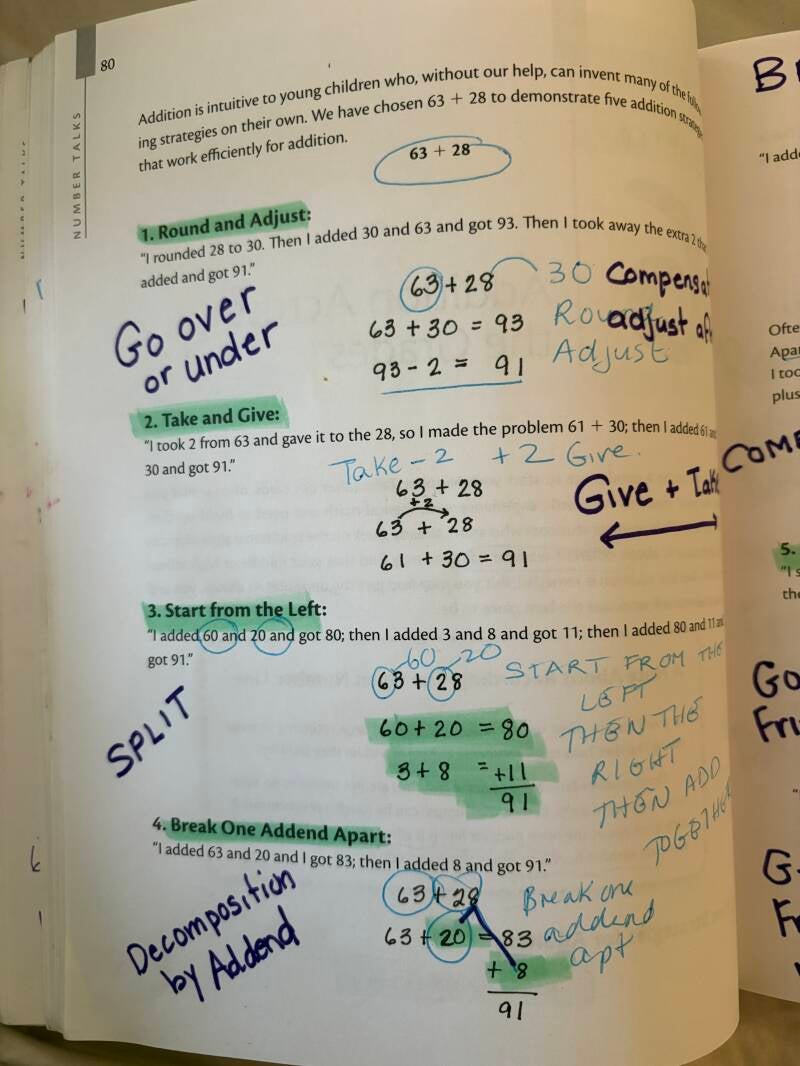 80
NUMBER TALKS
Addition is intuitive to young children who, without our help, can invent many of the
ing strategies on their own. We have chosen 63 + 28 to demonstrate five addition
that work efficiently for addition.
63 + 28
1. Round and Adjust:
"I rounded 28 to 30. Then I added 30 and 63 and got 93. Then I took away the extra 2
added and got 91."
63 + 28 30 Compensat
63 + 30 = 93 adjust
93 - 2 = 91 Adjust
Go over
or under
2. Take and Give:
"I took 2 from 63 and gave it to the 28, so I made the problem 61 + 30; then I added 61
30 and got 91."
Take - 2 + 2 Give.
63 + 28
+2
63 + 28
61 + 30 = 91
Give + Take
3. Start from the Left:
"I added 60 and 20 and got 80; then I added 3 and 8 and got 11; then I added 80 and 11
got 91."
60 20
63 + 28
60 + 20 = 80
3 + 8 = +11
91
START FROM THE
LEFT
THEN THE
RIGHT
THEN ADD
TOGETHER
SPLIT
4. Break One Addend Apart:
"I added 63 and 20 and I got 83; then I added 8 and got 91."
63 + 28
63 + 20 = 83
+ 8
91
Break one
addend
apt
Decomposition
by Addend
B
"I adde
Ofte
Apar
I too
plus
COM
5.
"I s
the
Go
Fri
G
F